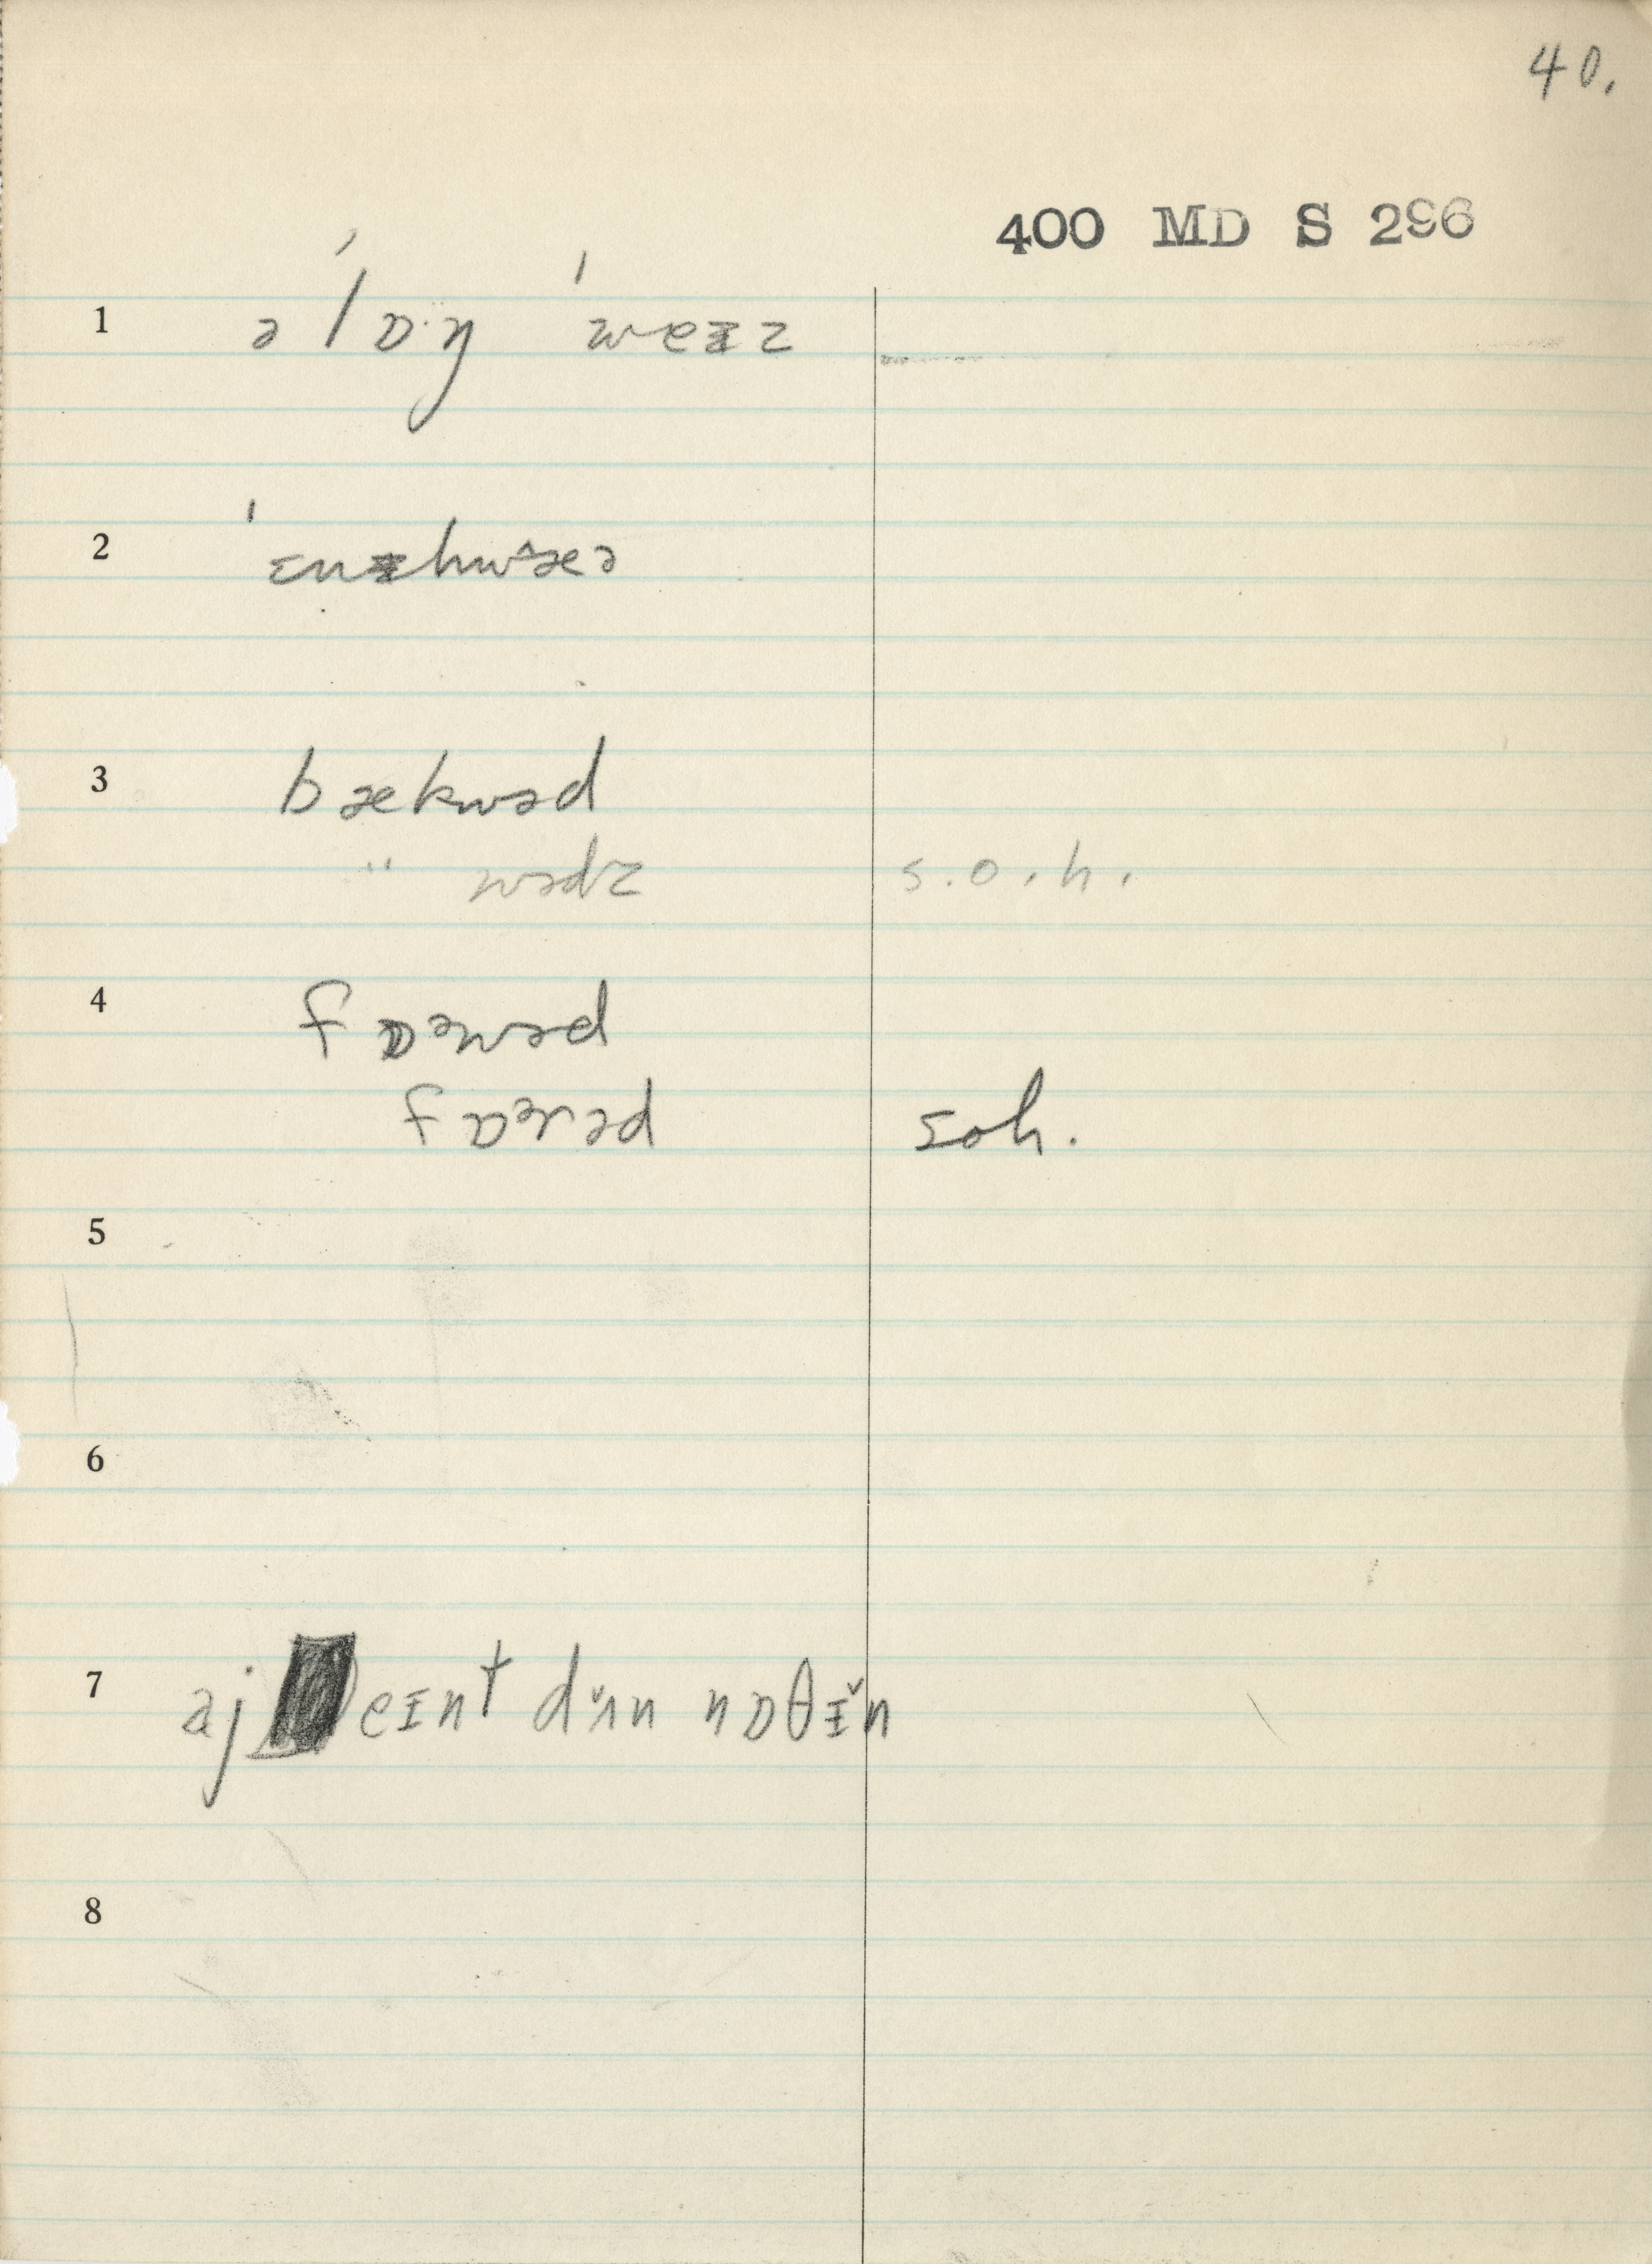 40.
400 MD S 296
1 ə ˈlɒ·ŋ ˈweɪz
2 ˈɛnɪhwæ̂ə
3 bækwəd
" wədz s.o.h.
4 fɒəwəd
fɒərəd soh.
5
6
7 aj eɪnt dʌ̆n nɒθɪ̆n
8